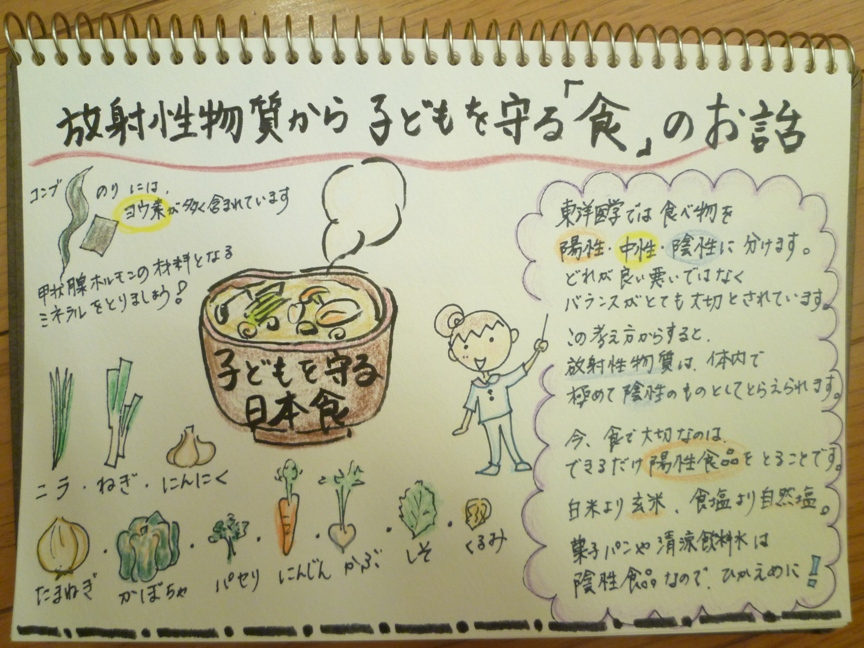 放射性物質から子どもを守る「食」のお話
コンブ のりには、
ヨウ素が多く含まれています
甲状腺ホルモンの材料となる
ミネラルをとりましょう!
子どもを守る
日本食
ニラ・ねぎ・にんにく
たまねぎ・かぼちゃ・パセリ・にんじん・かぶ・しそ・くるみ
東洋医学では食べ物を
陽性・中性・陰性に分けます。
どれが良い悪いではなく
バランスがとても大切とされています。
この考え方からすると、
放射性物質は、体内で
極めて陰性のものとしてとらえられます。
今、食で大切なのは、
できるだけ陽性食品をとることです。
白米より玄米、食塩より自然塩。
菓子パンや清涼飲料水は
陰性食品なので、ひかえめに!